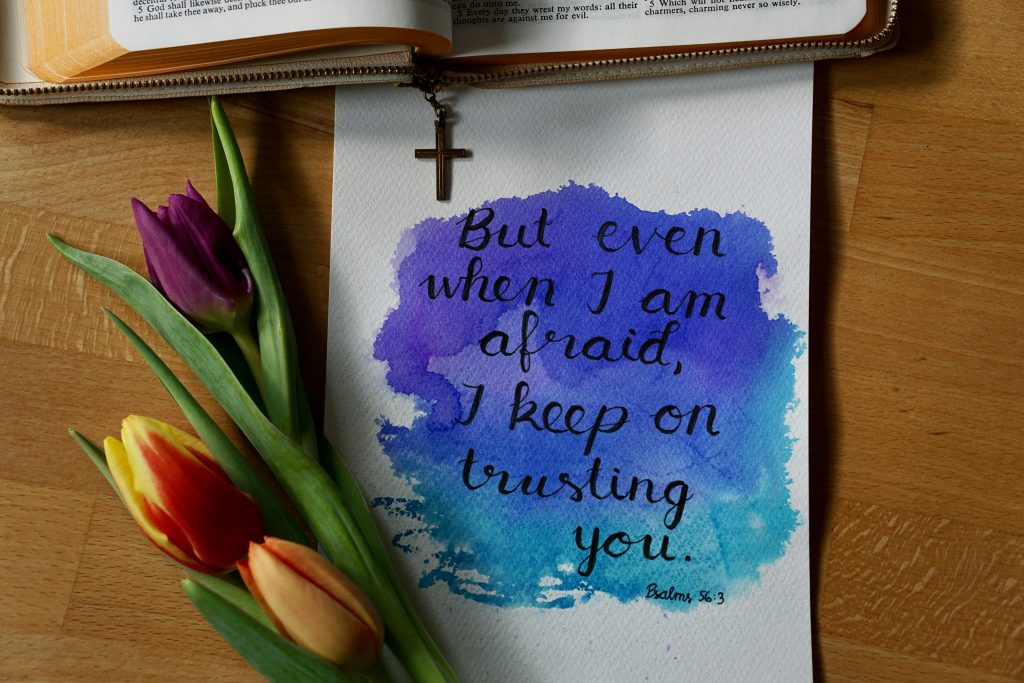 deceitful
5 God shall likewise
he shall take thee away, and pluck thee out
can do unto me.
5 Every day they wrest my words: all their
thoughts are against me for evil.
5 Which will not
charmers, charming never so wisely.
But even
when I am
afraid,
I keep on
trusting
you.
Psalms 56:3